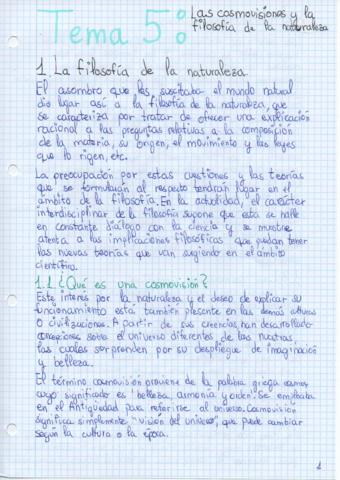 Tema 5:
Las cosmovisiones y la
filosofía de la naturaleza
1 La filosofía de la naturaleza
El asombro que les suscitaba el mundo natural
dio lugar así a la filosofía de la naturaleza, que
se caracteriza por tratar de ofrecer una explicación
racional a las preguntas relativas a la composición
de la materia, su origen, el movimiento y las leyes
que lo rigen, etc.
La preocupación por estas cuestiones y las teorías
que se formulaban al respecto tendrán lugar en el
ámbito de la filosofía. En la actualidad, el carácter
interdisciplinar de la filosofía supone que esta se halle
en constante diálogo con la ciencia y se muestre
atenta a las implicaciones filosóficas que puedan tener
las nuevas teorías que van surgiendo en el ámbito
científico.
1.1 ¿Qué es una cosmovisión?
Este interés por la naturaleza y el deseo de explicar su
funcionamiento está también presente en las demás culturas
o civilizaciones. A partir de sus creencias han desarrollado
concepciones sobre el universo diferentes de las nuestras,
las cuales sorprenden por su despliegue de imaginación
y belleza.
El término cosmovisión proviene de la palabra griega cosmos
cuyo significado es "belleza, armonía y orden". Se empleaba
en la Antigüedad para referirse al universo. Cosmovisión
significa simplemente "visión del universo", que puede cambiar
según la cultura o la época.
1